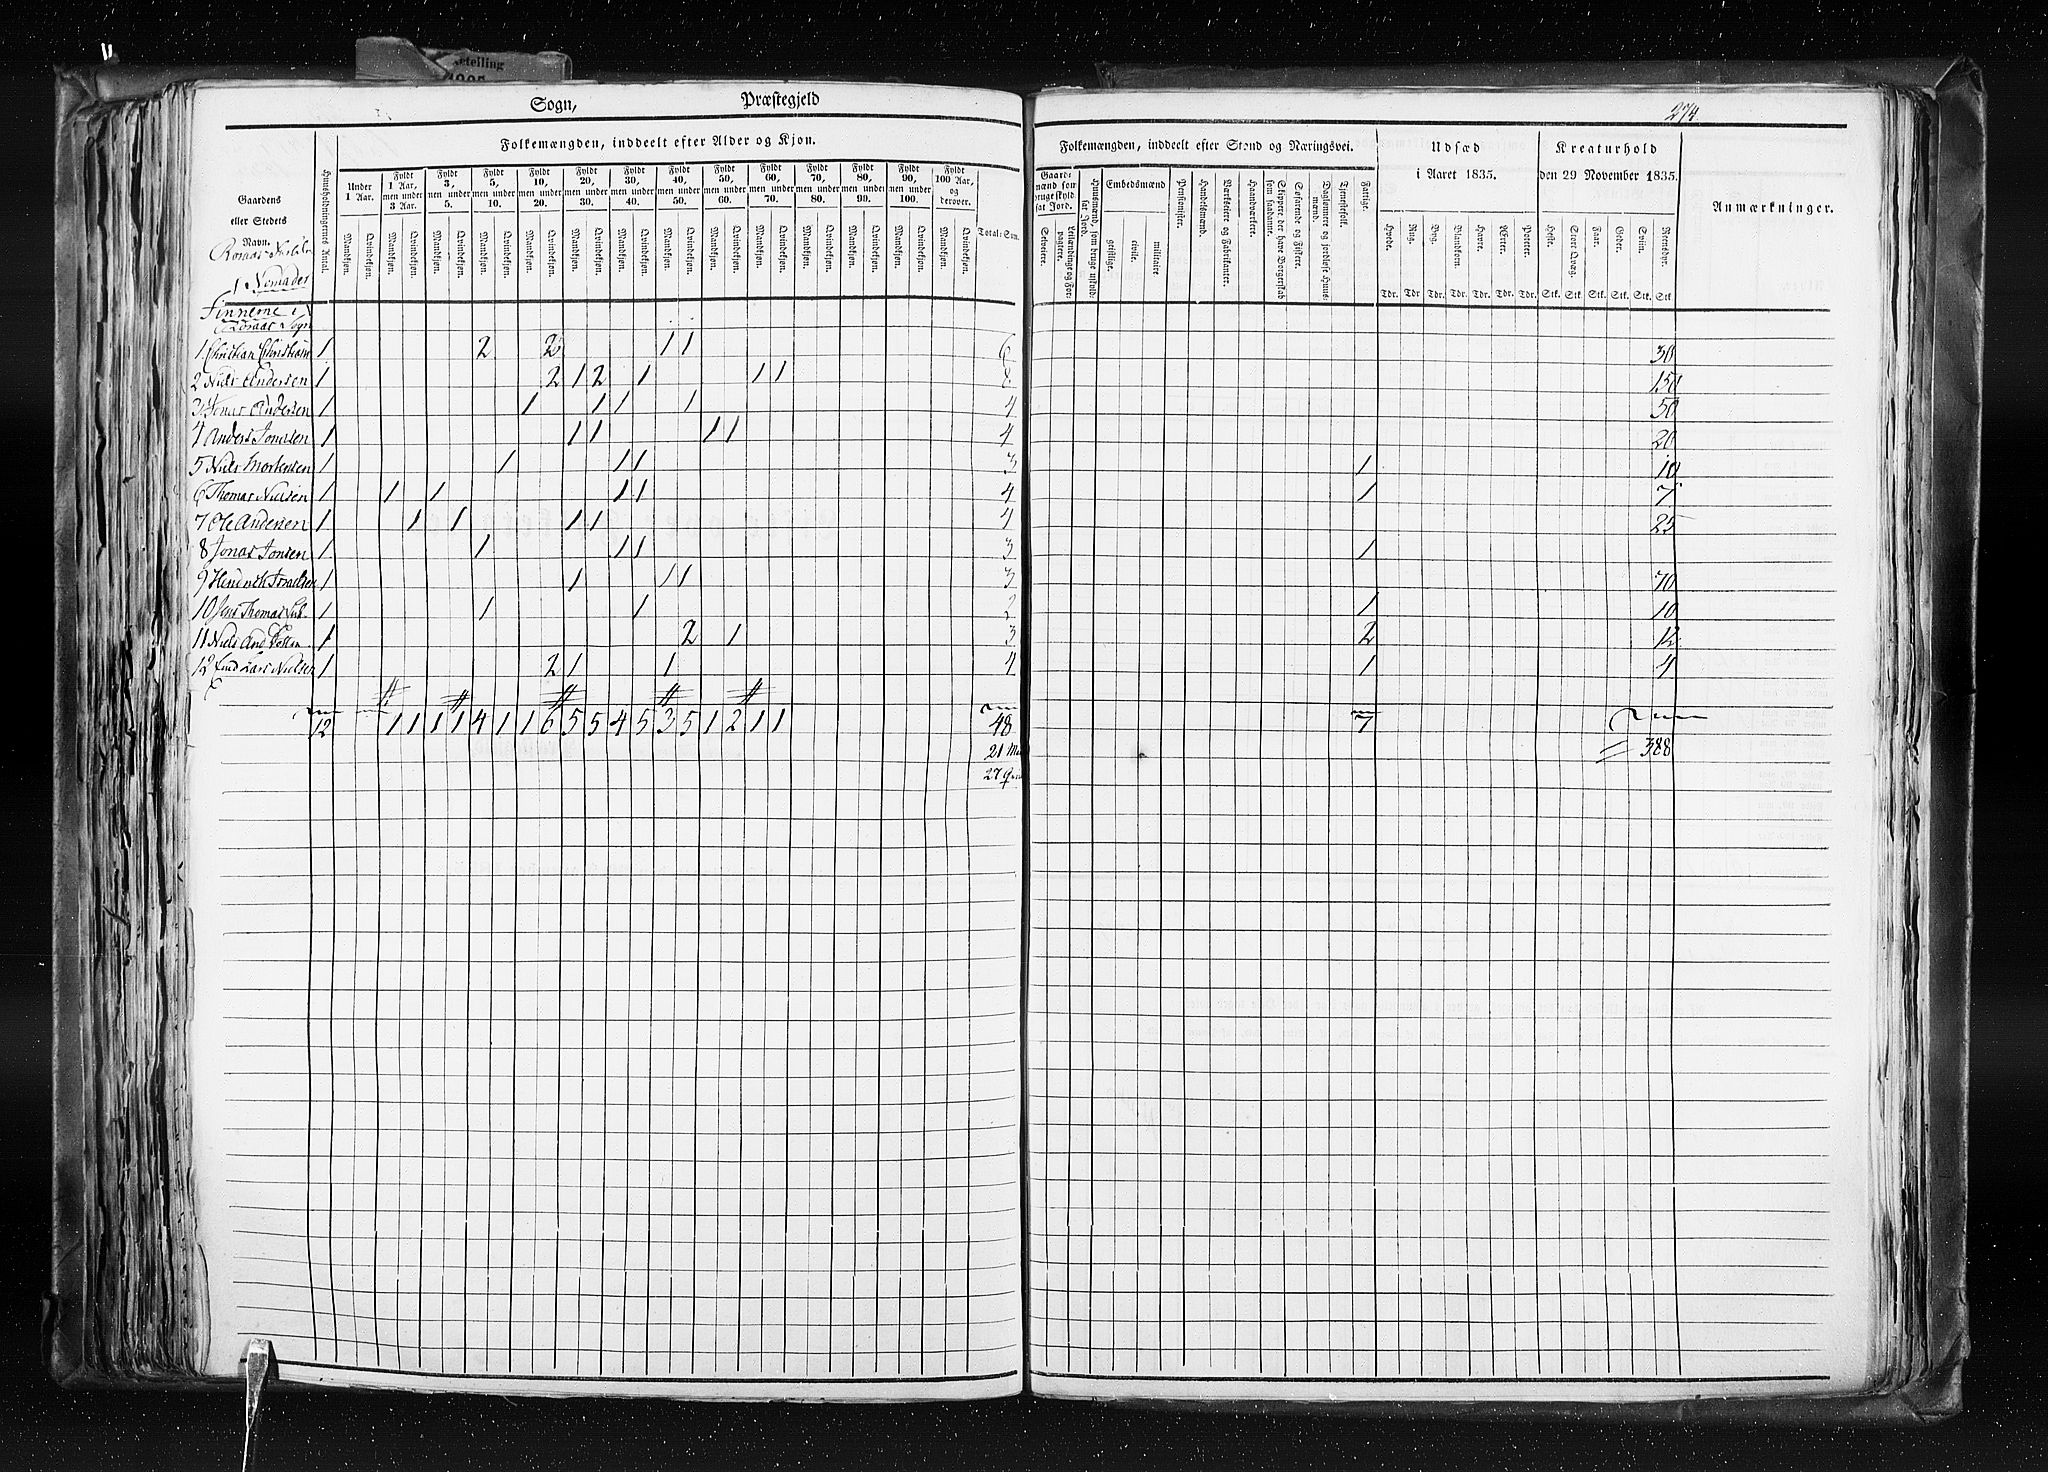 Sogn, Præstegjeld
274
Folkemængden, inddeelt efter Alder og Kjøn.
Folkemængden, inddeelt efter Stand og Næringsvei.
Udsæd
i Aaret 1835.
Kreaturhold
den 29 November 1835.
Anmærkninger.
Gaardens
eller Stedets
Navn.
Nomader
Huusholdningernes Antal.
Under 1 Aar.
Fyldt 1 Aar, men under 3 Aar.
Fyldt 3, men under 5.
Fyldt 5, men under 10.
Fyldt 10, men under 20.
Fyldt 20, men under 30.
Fyldt 30, men under 40.
Fyldt 40, men under 50.
Fyldt 50, men under 60.
Fyldt 60, men under 70.
Fyldt 70, men under 80.
Fyldt 80, men under 90.
Fyldt 90, men under 100.
Fyldt 100 Aar, og derover.
Total-Sum.
Mandkjøn. Qvindekjøn. Mandkjøn. Qvindekjøn. Mandkjøn. Qvindekjøn. Mandkjøn. Qvindekjøn. Mandkjøn. Qvindekjøn. Mandkjøn. Qvindekjøn. Mandkjøn. Qvindekjøn. Mandkjøn. Qvindekjøn. Mandkjøn. Qvindekjøn. Mandkjøn. Qvindekjøn. Mandkjøn. Qvindekjøn. Mandkjøn. Qvindekjøn. Mandkjøn. Qvindekjøn. Mandkjøn. Qvindekjøn.
Gaardmænd som bruge skyldsat Jord.
Selveiere.
Leilændinge og Forpagtere.
Huusmænd, som bruge uskyldsat Jord.
Embedsmænd
geistlige.
civile.
militaire
Pensionister.
Handelsmænd.
Værkseiere og Fabrikanter.
Haandværkere.
Skippere der have Borgerskab som saadanne.
Søfarende og Fiskere.
Daglønnere og jordløse Huusmænd.
Tjenestefolk.
Fattige.
Hvede. Rug. Byg. Blandkorn. Havre. Ærter. Poteter.
Tdr. Tdr Tdr. Tdr. Tdr. Tdr. Tdr.
Heste. Stort Qvæg. Faar. Geder. Sviin. Rensdyr.
Stk. Stk. Stk. Stk. Stk. Stk
Finnerne i
Sogn
1 Christian Christians 1 2 2 1 1 6 30
2 Niels Andersen 1 2 1 2 1 1 1 8 150
3 Jonas Andersen 1 1 1 1 1 4 50
4 Anders Jonassen 1 1 1 1 1 4 20
5 Niels Mortensen 1 1 1 1 3 1 10
6 Thomas Nielsen 1 1 1 1 1 4 1 7
7 Ole Andersen 1 1 1 1 1 4 25
8 Jonas Jonsen 1 1 1 1 3 1
9 Hendrich 1 1 1 1 3 70
10 Jens Thomas 1 1 1 2 1 10
11 Niels And 1 2 1 3 2 12
12 Nielsen 1 2 1 1 4 1 4
12 1 1 1 1 4 1 1 6 5 5 4 5 3 5 1 2 1 1 48 7
388
21 M
27 Q